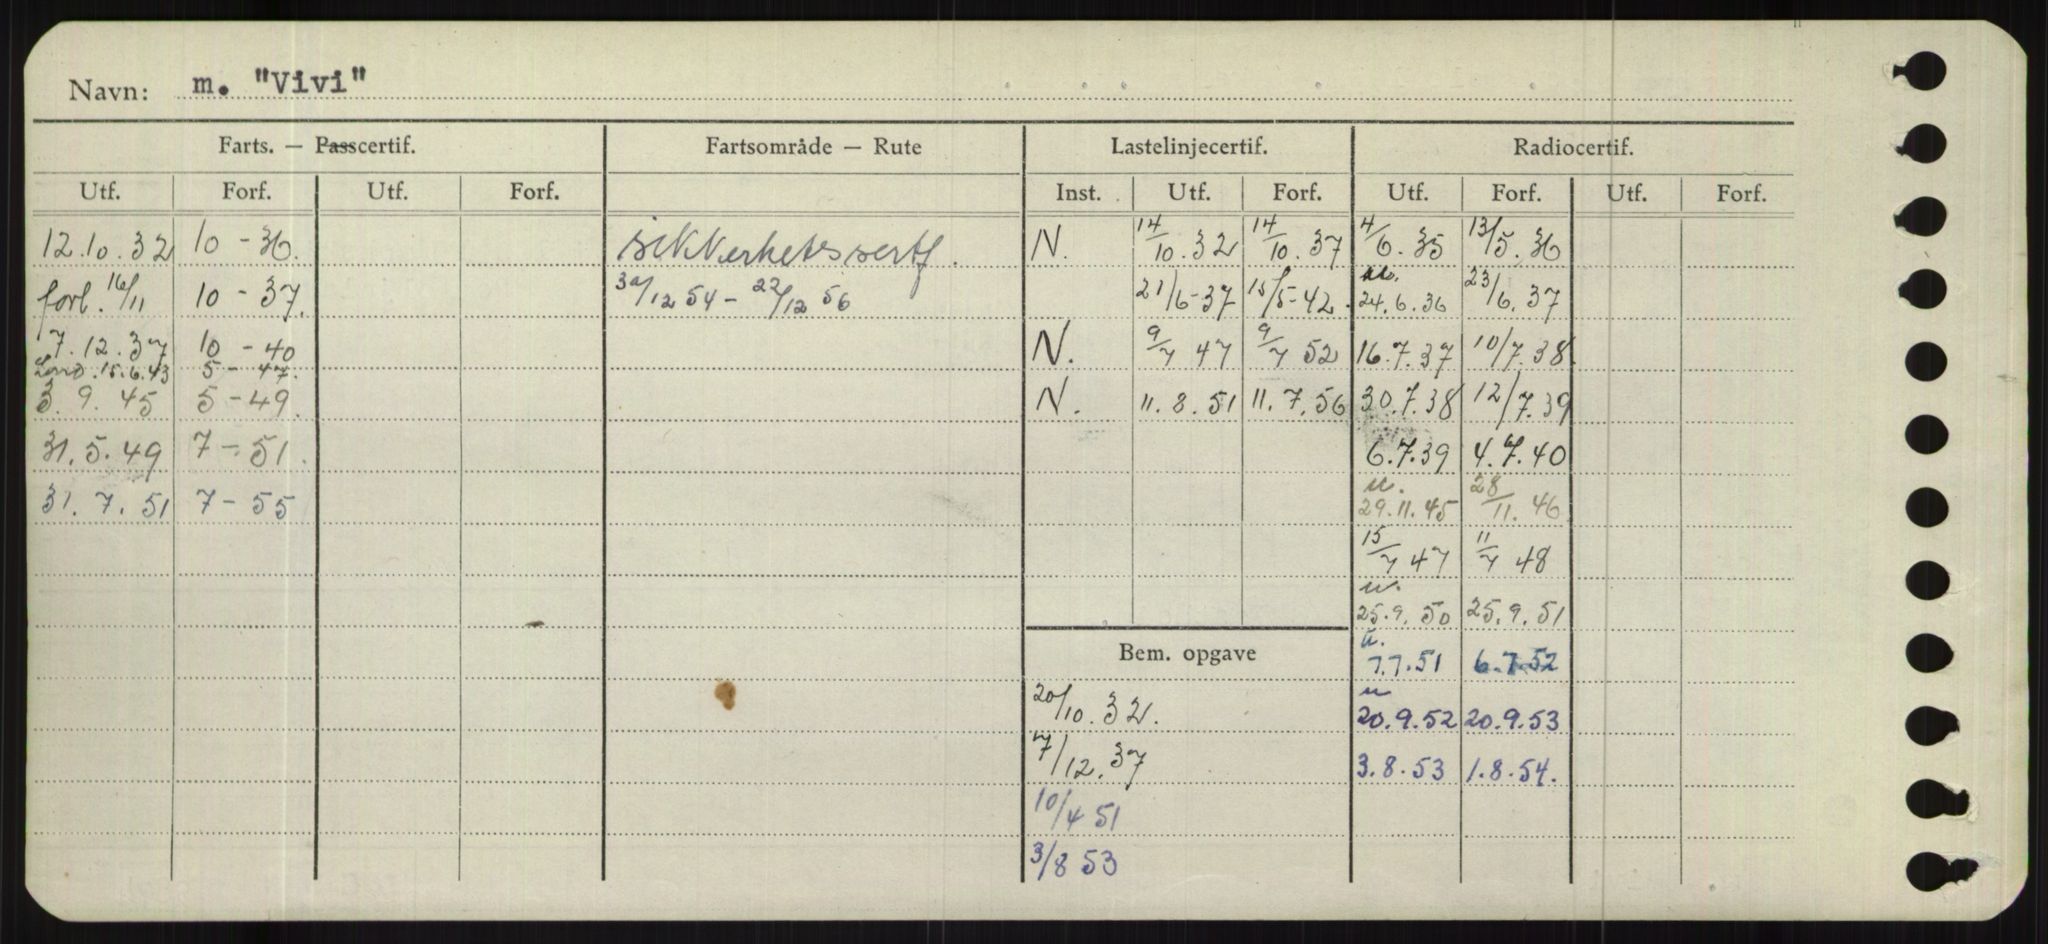 Navn: m. "Vivi"
Farts. — Passcertif. Fartsområde — Rute Lastelinjecertif. Radiocertif.
Utf. Forf. Utf. Forf. Inst. Utf. Forf. Utf. Forf. Utf. Forf.
12.10.32 10 - 36. sikkerhetssertf. N. 14/10.32 14/10.37 4/6.35 13/5.36
forl. 16/11 10 - 37. 30/12 54 - 22/12 56 21/6-37 15/5-42. 24.6.36 23/6.37
7.12.37 10 - 40 N. 9/7 47 9/7 52 16.7.37 10/7.38.
Lond. 15.6.43 5 - 47.
3.9.45 5 - 49. N. 11.8.51 11.7.56 30.7.38 12/7.39
31.5.49 7 - 51. 6.7.39 4.7.40
u.
31.7.51 7 - 55 29.11.45 28/11.46
15/7 47 11/7 48
u.
25.9.50 25.9.51
u.
Bem. opgave 7.7.51 6.7.52
u
20/10.32. 20.9.52 20.9.53
7/12.37 3.8.53 1.8.54.
10/4 51
3/8 53